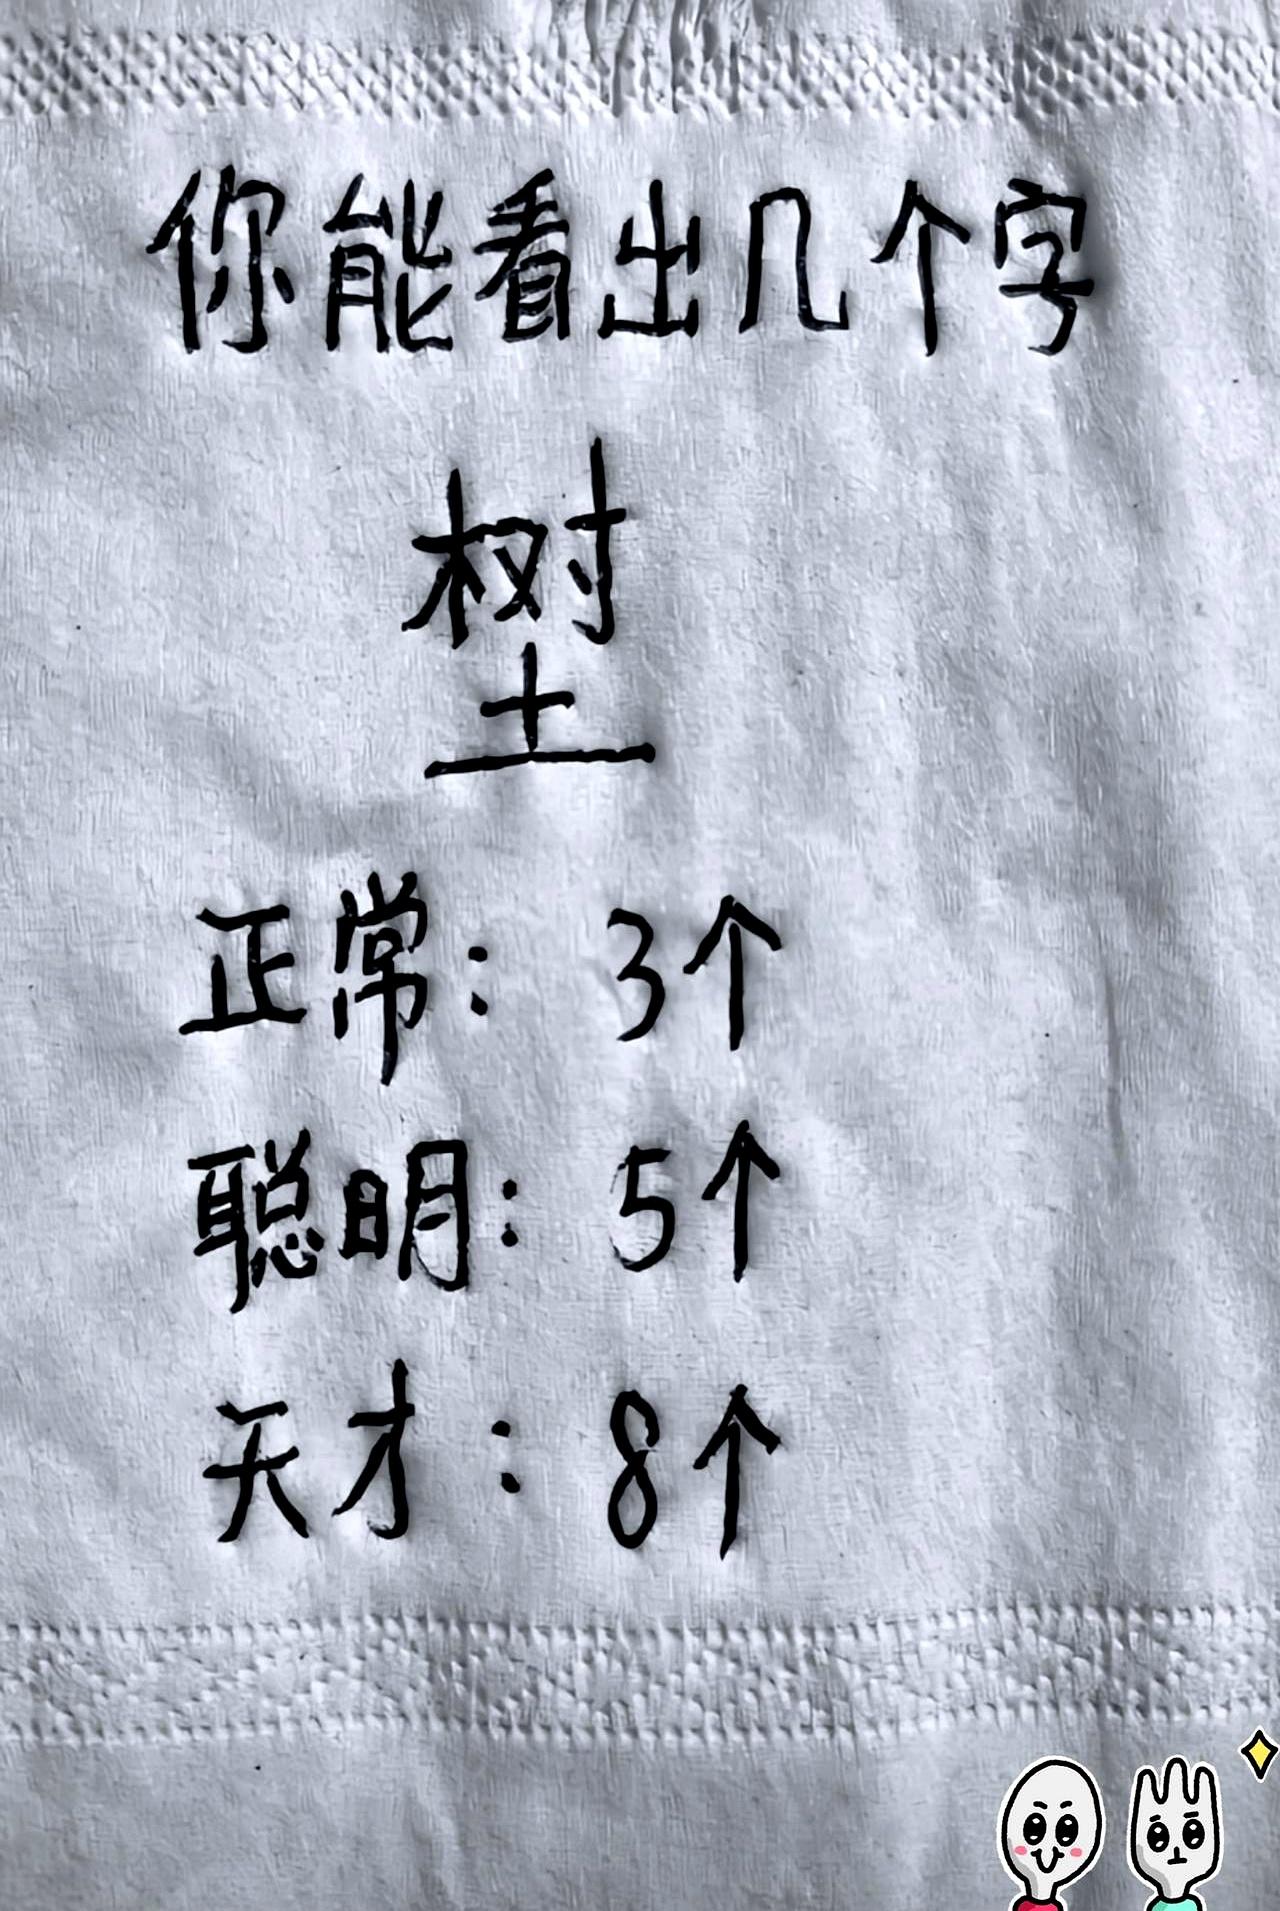 你能看出几个字
树
土
正常：3个
聪明：5个
天才：8个